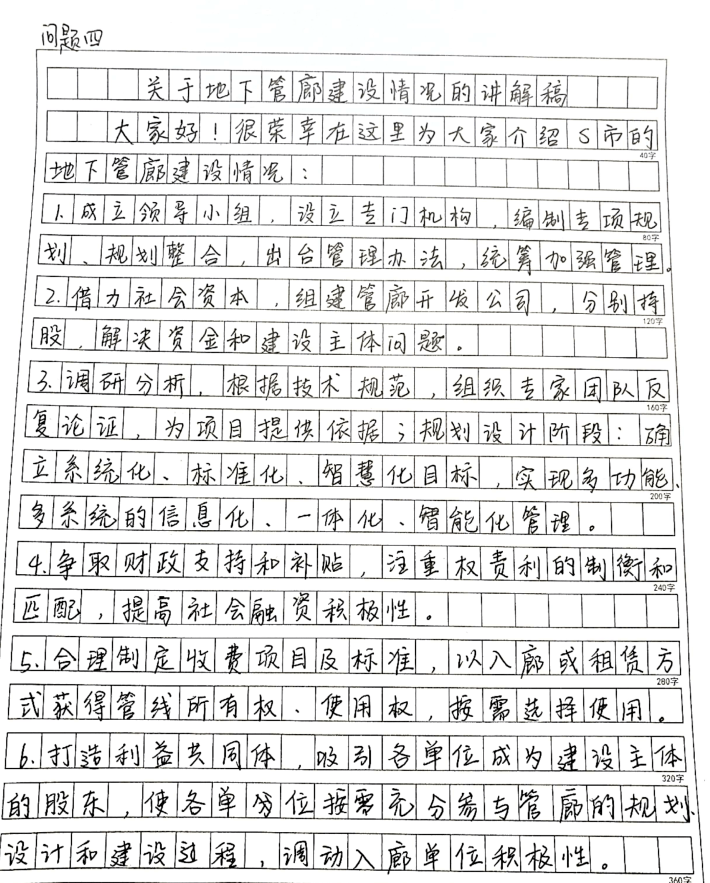 问题四
关于地下管廊建设情况的讲解稿
大家好！很荣幸在这里为大家介绍S市的
40字
地下管廊建设情况：
1.成立领导小组，设立专门机构，编制专项规
80字
划、规划整合，出台管理办法，统筹加强管理。
2.借力社会资本，组建管廊开发公司，分别持
120字
股，解决资金和建设主体问题。
3.调研分析，根据技术规范，组织专家团队反
160字
复论证，为项目提供依据；规划设计阶段：确
立系统化、标准化、智慧化目标，实现多功能、
200字
多系统的信息化、一体化、智能化管理。
4.争取财政支持和补贴，注重权责利的制衡和
240字
匹配，提高社会融资积极性。
5.合理制定收费项目及标准，以入廊或租赁方
280字
式获得管线所有权、使用权，按需选择使用。
6.打造利益共同体，吸引各单位成为建设主体
320字
的股东，使各单位按需充分参与管廊的规划、
设计和建设过程，调动入廊单位积极性。
360字